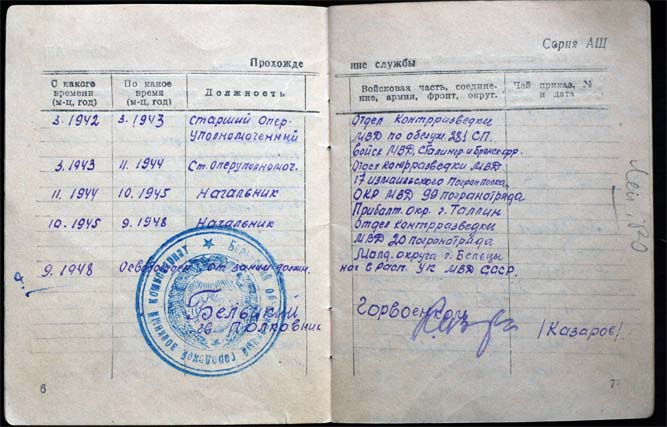 Прохожде
С какого
времени
(м-ц, год)
По какое
время
(м-ц, год)
Должность
3. 1942
3. 1943
Старший Опер-
уполномоченный
3. 1943
11. 1944
Ст. оперуполномоч.
11. 1944
10. 1945
Начальник
10. 1945
9. 1948
Начальник
9. 1948
от
Полковник
6
Серия АЩ
ние службы
Войсковая часть, соедине-
ние, армия, фронт, округ.
Чей приказ, №
и дата
Отдел Контрразведки
МВД по обслуж. 281 СП.
Войск МВД. Сталингр. и Брянск. фр.
Отдел Контрразведки МВД
17 Измаильского Погранполка.
ОКР МВД 99 погранотряда
Прибалт. окр. г. Таллин
Отдел Контрразведки
МВД 20 погранотряда
округа г. Бельцы
в Расп. УК МВД СССР.
Горвоенком
/Казаров/
7